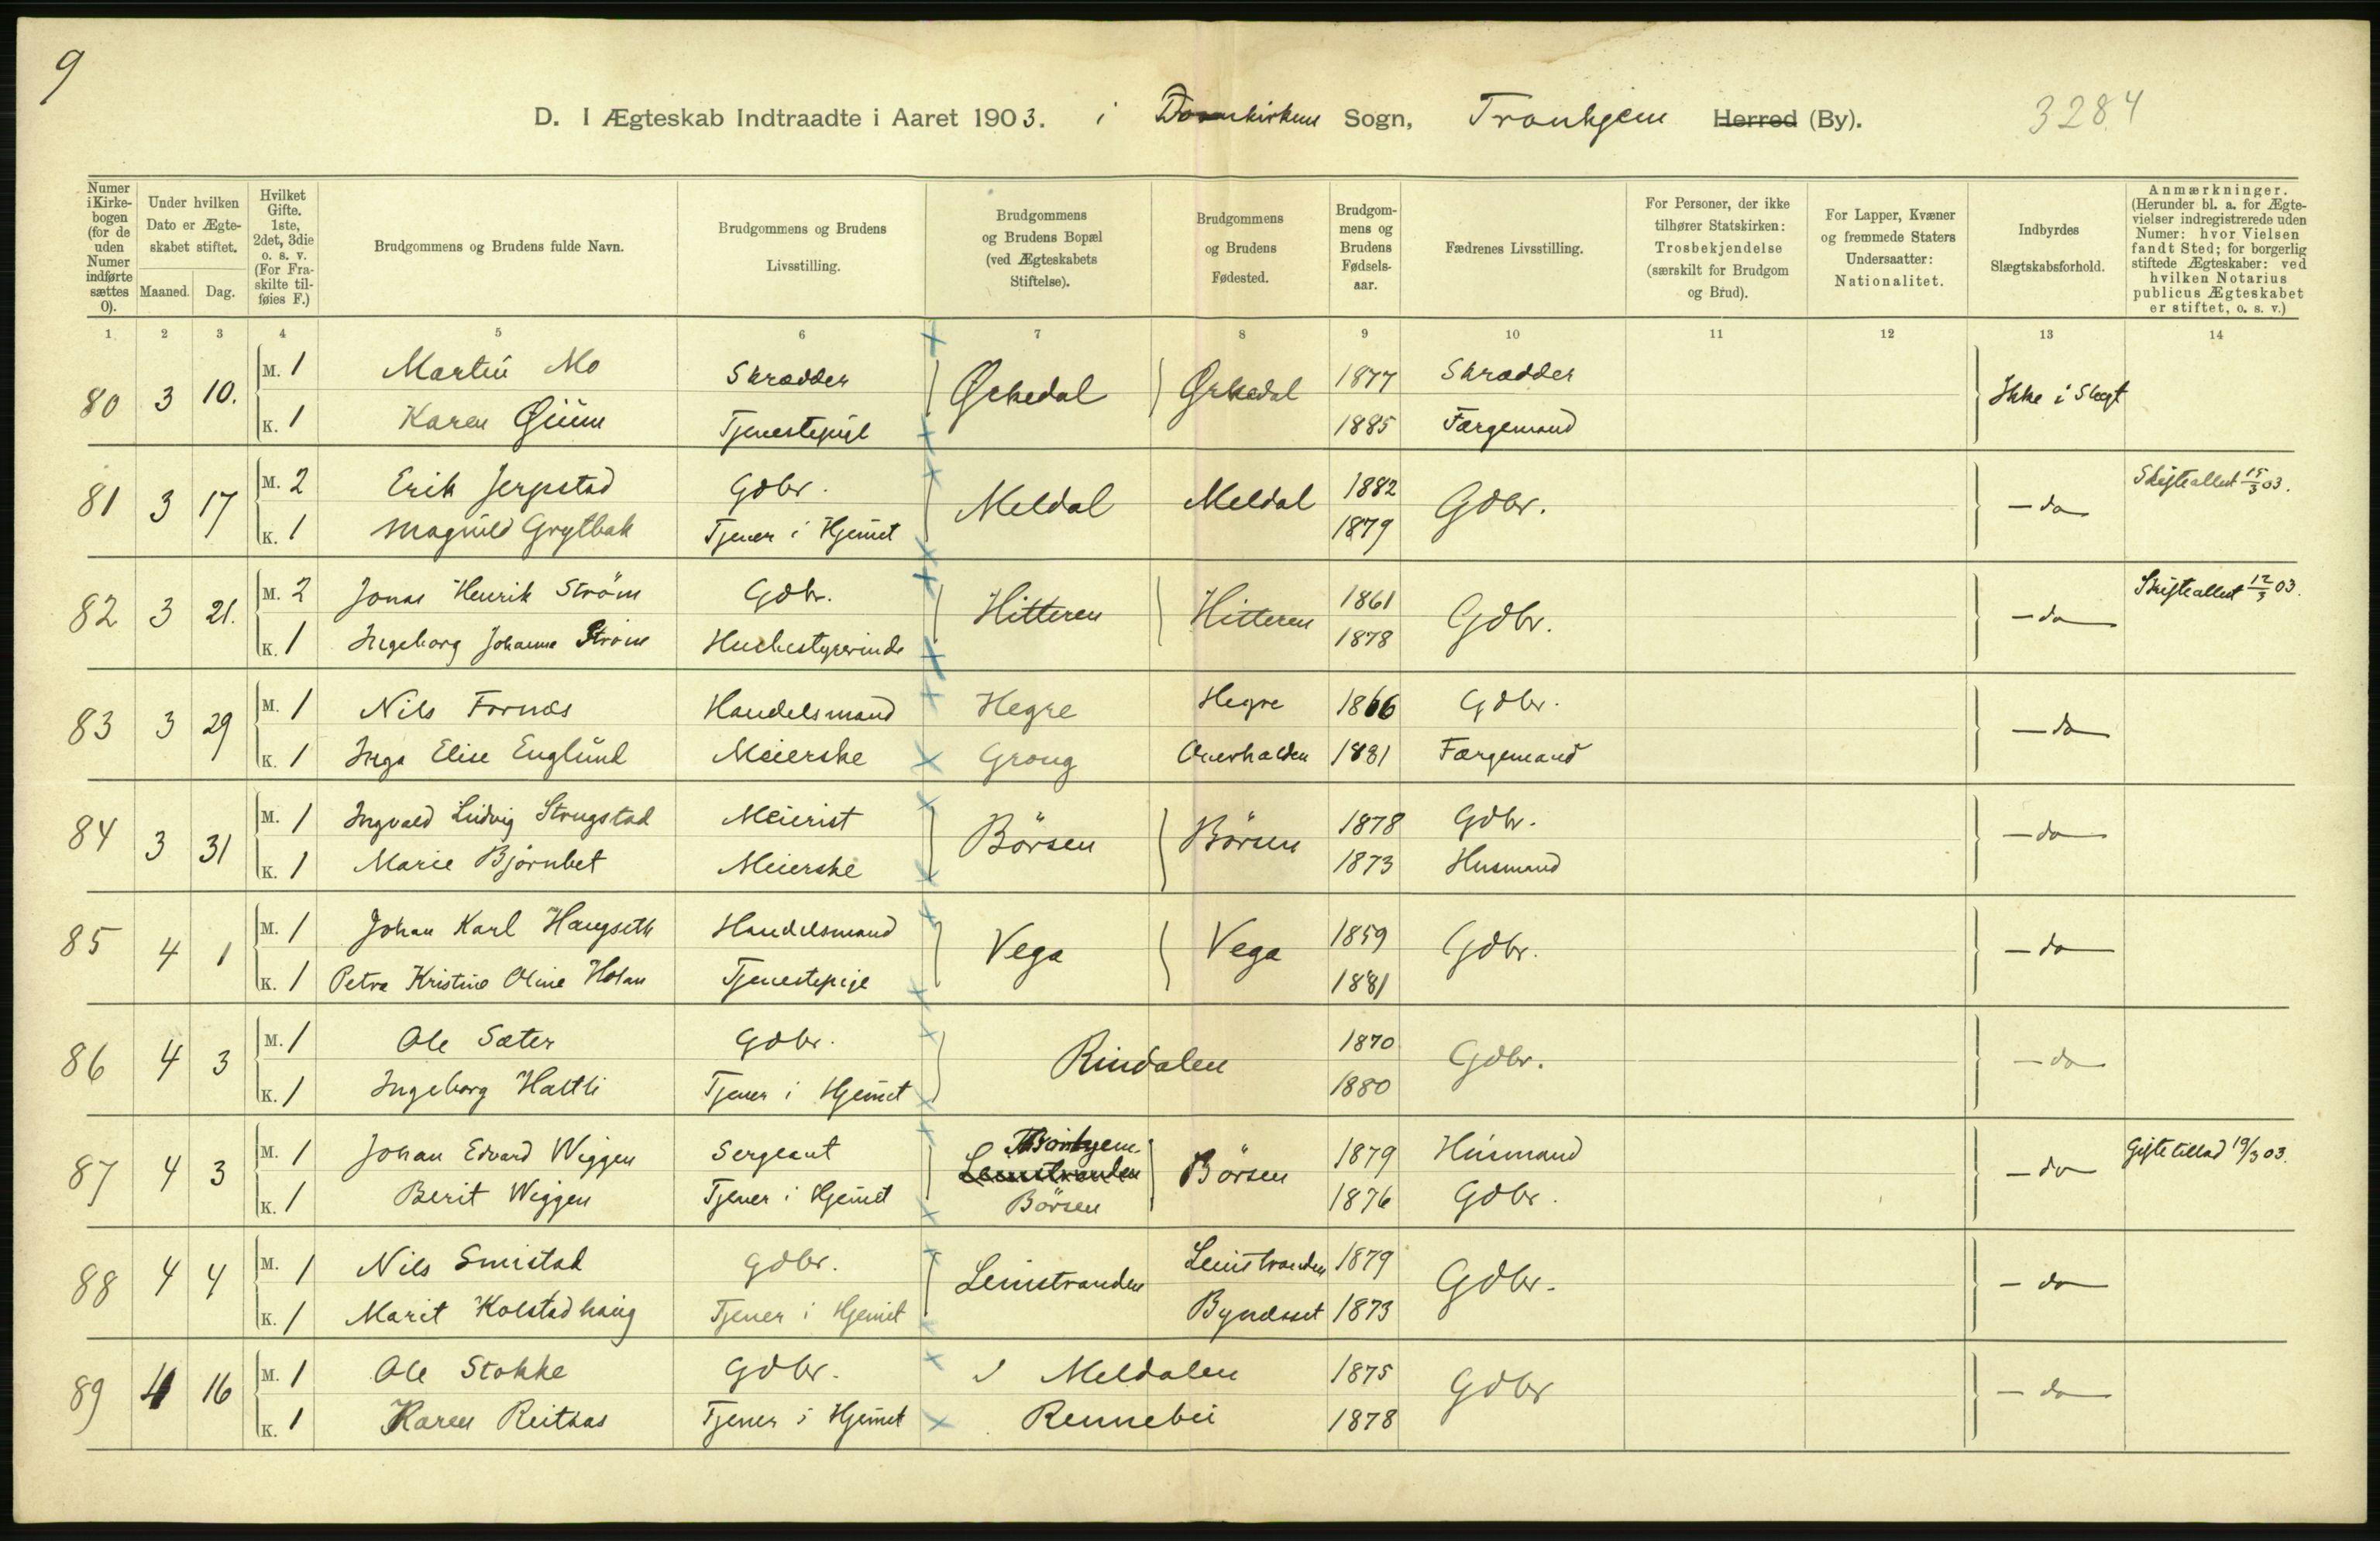 9
D. I Ægteskab Indtraadte i Aaret 1903. i Domkirkens Sogn, Tronhjem Herred (By).
3284
Numer i Kirkebogen (for de uden Numer indførte sættes 0).
Under hvilken Dato er Ægteskabet stiftet.
Maaned. Dag.
Hvilket Gifte. 1ste, 2det, 3die o. s. v. (For Fraskilte tilføies F.)
Brudgommens og Brudens fulde Navn.
Brudgommens og Brudens Livsstilling.
Brudgommens og Brudens Bopæl (ved Ægteskabets Stiftelse).
Brudgommens og Brudens Fødested.
Brudgommens og Brudens Fødselsaar.
Fædrenes Livsstilling.
For Personer, der ikke tilhører Statskirken: Trosbekjendelse (særskilt for Brudgom og Brud).
For Lapper, Kvæner og fremmede Staters Undersaatter: Nationalitet.
Indbyrdes Slægtskabsforhold.
Anmærkninger. (Herunder bl. a. for Ægtevielser indregistrerede uden Numer: hvor Vielsen fandt Sted; for borgerlig stiftede Ægteskaber: ved hvilken Notarius publicus Ægteskabet er stiftet, o. s. v.)
1 2 3 4 5 6 7 8 9 10 11 12 13 14
80 3 10. M. 1 Martin Mo Skrædder Ørkedal Ørkedal 1877 Skrædder Ikke i Slegt
K. 1 Karen Gium Tjenestepige 1885 Færgemand
81 3 17 M. 2 Erik Jerpstad Gdbr. Meldal Meldal 1882 Gdbr. — do Skifteattest 15/3 03.
K. 1 Magnild Grytbak Tjener i Hjemet 1879
82 3 21. M. 2 Jonas Henrik Strøm Gdbr. Hitteren Hitteren 1861 Gdbr. — do Skifteattest 12/3 03.
K. 1 Ingeborg Johanna Strøm Husbestyrerinde 1878
83 3 29 M. 1 Nils Fornes Handelsmand Hegre Hegre 1866 Gdbr. — do
K. 1 Inga Elise Englund Meierske Grong Overhalden 1881 Færgemand
84 3 31 M. 1 Ingvald Ludvig Strugstad Meierist Börsen Börsen 1878 Gdbr. — do
K. 1 Marie Bjørnbet Meierske 1873 Husmand
85 4 1 M. 1 Johan Karl Haugseth Handelsmand Vega Vega 1859 Gdbr. — do
K. 1 Petra Kristine Oline Holan Tjenestepige 1881
86 4 3 M. 1 Ole Sæter Gdbr. Rindalen 1870 Gdbr. — do
K. 1 Ingeborg Haltli Tjener i Hjemet 1880
87 4 3 M. 1 Johan Edvard Wiggen Sergeant Tronhjem Leinstranden Börsen 1879 Husmand — do Giftetillad 19/3 03.
K. 1 Berit Wiggen Tjener i Hjemet Börsen 1876 Gdbr.
88 4 4 M. 1 Nils Smistad Gdbr. Leinstranden Leinstranden 1879 Gdbr. — do
K. 1 Marit Kolstadhaug Tjener i Hjemet Byneset 1873
89 4 16 M. 1 Ole Stokke Gdbr. Meldalen 1875 Gdbr — do
K. 1 Karen Reitaas Tjener i Hjemet Rennebu 1878